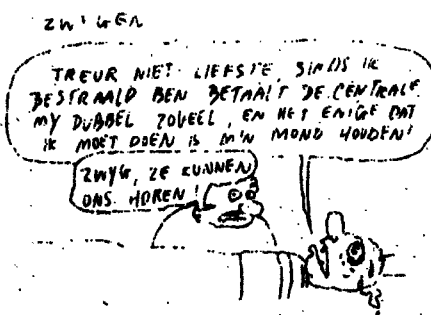 ZWIJGEN
TREUR NIET LIEFSTE, SINDS IK
BESTRAALD BEN BETAALT DE CENTRALE
MY DUBBEL ZOVEEL, EN HET ENIGE DAT
IK MOET DOEN IS M'N MOND HOUDEN!
ZWYG, ZE KUNNEN
ONS HOREN!